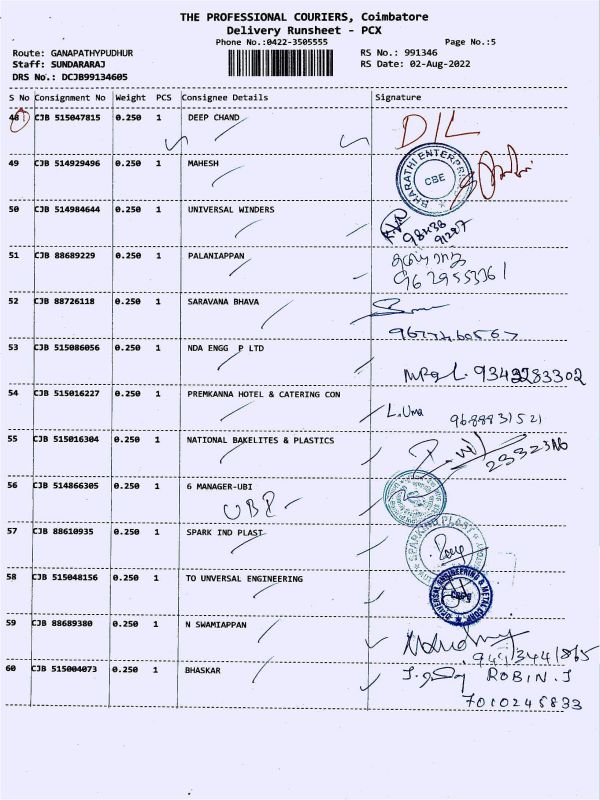 THE PROFESSIONAL COURIERS, Coimbatore
Delivery Runsheet - PCX
Phone No.:0422-3505555 Page No.:5
Route: GANAPATHYPUDHUR RS No.: 991346
Staff: SUNDARARAJ RS Date: 02-Aug-2022
DRS No.: DCJB99134605
S No Consignment No Weight PCS Consignee Details Signature
48 CJB 515047815 0.250 1 DEEP CHAND D/L
49 CJB 514929496 0.250 1 MAHESH
BHARATHI ENTERPRISES CBE
50 CJB 514984644 0.250 1 UNIVERSAL WINDERS
98438
91287
51 CJB 88689229 0.250 1 PALANIAPPAN
9629553761
52 CJB 88726118 0.250 1 SARAVANA BHAVA
53 CJB 515086056 0.250 1 NDA ENGG P LTD
9343283302
54 CJB 515016227 0.250 1 PREMKANNA HOTEL & CATERING CON
L. Uma 9688831521
55 CJB 515016304 0.250 1 NATIONAL BAKELITES & PLASTICS
56 CJB 514866305 0.250 1 6 MANAGER-UBI
UBI
57 CJB 88610935 0.250 1 SPARK IND PLAST
SPARKIND PLAST
58 CJB 515048156 0.250 1 TO UNVERSAL ENGINEERING
UNIVERSAL ENGINEERING & METAL CORP
59 CJB 88689380 0.250 1 N SWAMIAPPAN
9413441865
60 CJB 515004073 0.250 1 BHASKAR
ROBIN.J
7010245833